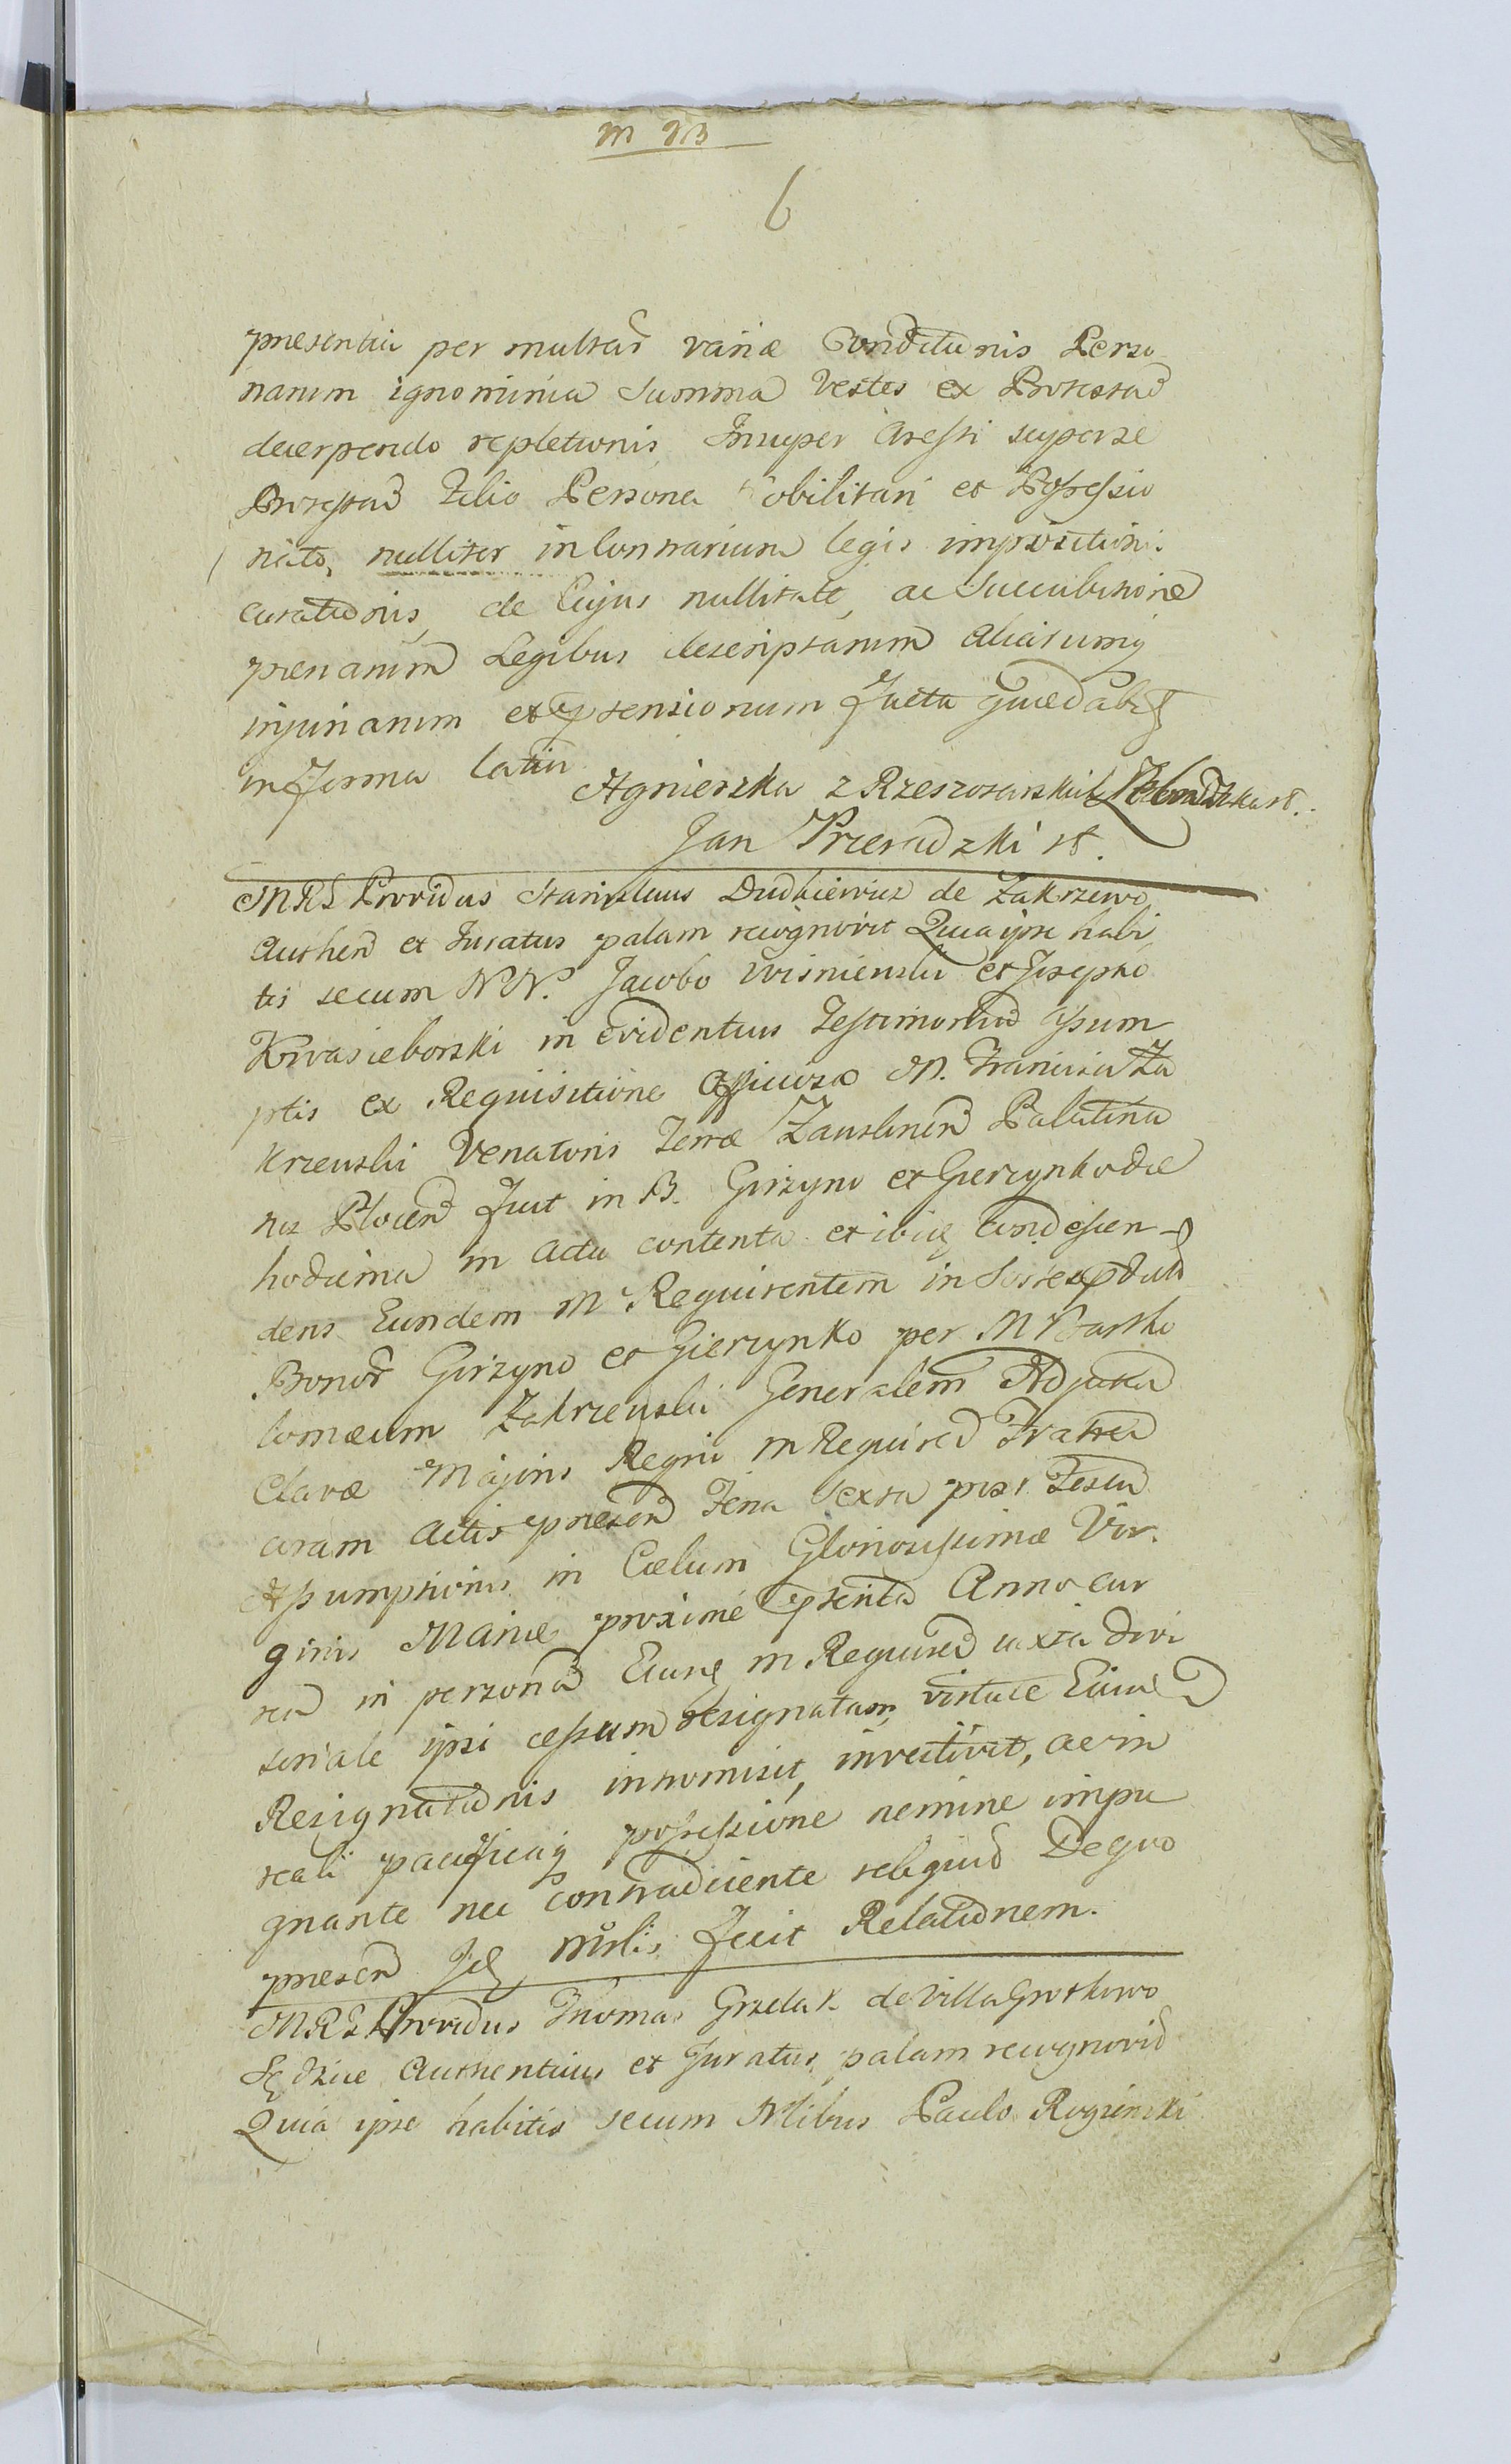 6
presentia per multas variæ Conditionis Perso
narum ignominia Summa Vestes ex Protestad
decerpendo repletionis Insuper Aresti super se
Protestad Filio Persona Nobilitari et Possessio
nato, nulliter in Contrarium legis impositioni:
curationis, de Cujus nullitate, ac Succubitione
penarum Legibus descriptarum aliarumq
injuriarum et
in Forma Latiu
Agnieszka z Rzeszotarskich
Jan Przeradzki
MRS Providus Stanislaus Dudkiewicz de Zakrzewo
Authen et Juratus palam recognovit Quia ipse habi
tis secum NN. Jacobo Wisniewski et Josepho
Kwasieborski in evidentius Testimoniu assum
ptis ex Requisitione Officiosa M. Francisci Za
krzewski Venatoris Terræ Zauskrnen Palatina
tus Plocen Fuit in B. Girzyno et Gierzynko die
hodierna in Actu contenta et ibiq condescen
dens Eundem M Requirentem in
Bonor Girzyno et Gierzynko per M Bartho
lomæum Zakrzewski Generalem Adjutan
Clavæ Majoris Regni M Requiren Fratrem
coram Actis presen Feria Sexta post Festu
Assumptionis in Cælum Gloriosissimæ Vir.
ginis Mariæ proxime Anno cur
ren in persona M Requiren iuxta Divi
soriale ipsi cessam resignatam, virtute Eiusd
Resignationis intromisit, investivit, ac in
reali pacificaq possessione nemine impu
gnante nec contradicente reliquid De quo
presen Id mrlis fecit Relationem.
MRS Providus Thomas Grzelak de Villa Grotkowo
Sędzice Authenticus et Juratus palam recognovid
Quia ipse habitis secum Nlibus Paulo Rogieński